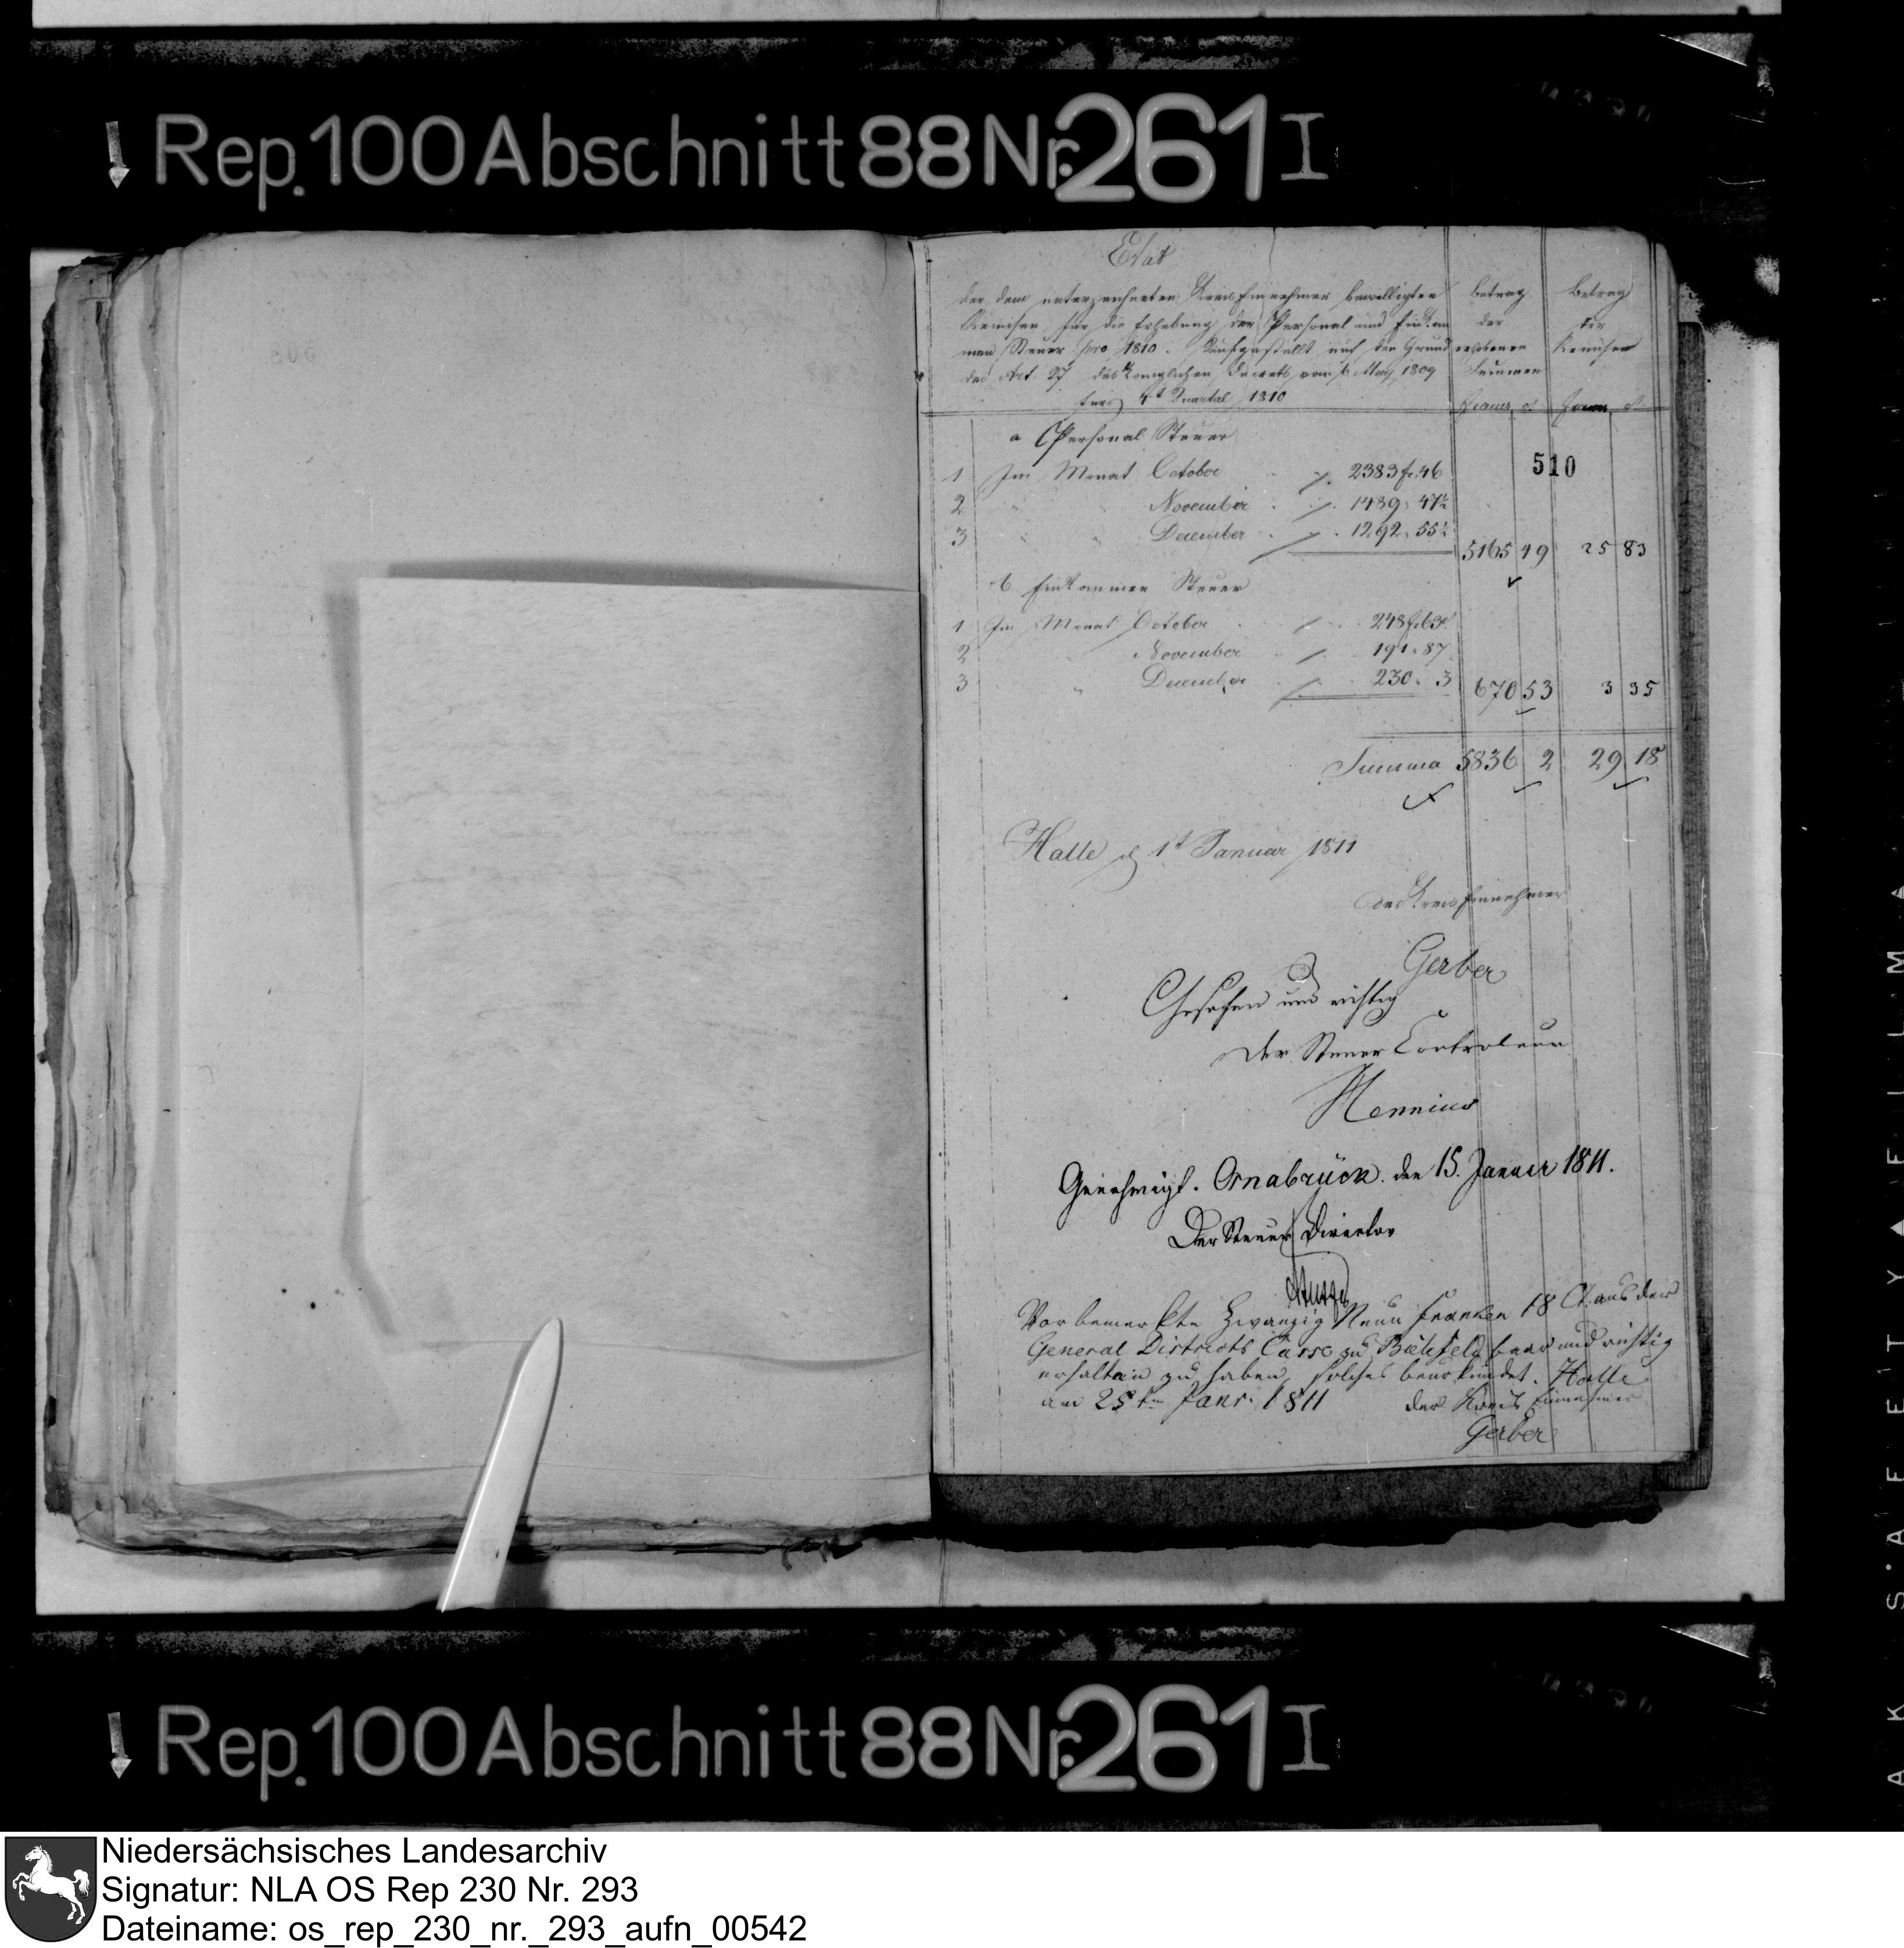 Rep. 100 Abschnitt 88 Nr. 261 I
Etat
der dem unterzeichneten Kreis Einnehmer bewilligten
Remisen für die Erhebung der Personal und Einkom
men Steuer pro 1810. Aufgestellt auf den Grund
des Art. 27 des Königlichen Decrets vom May 1809
4t Quartal 1810
betrag
der
erhobenen
Summen
Francs ct
Betrag
der
Remisen
Francs ct
510
a Personal Steuer
1 Im Monat October 2383 fr. 46
2 " " November 1489 " 47½
3 " " December 1292 " 55½ 5165 49 25 83
b Einkommen Steuer
1 Im Monat October 248 fr. 63
2 " November 191 " 87
3 " December 230 " 3 670 53 3 35
Summa 5836 2 29 18
Halle d 1t Januar 1811
der Kreis Einnehmer
Gerber
Gesehen und richtig
der Steuer Controleur
Genehmigt. Osnabrück. den 15. Januar 1811.
Der Steuer Director
Vorbemerkte Zwanzig Neun Franken 18 Ct. aus der
General Districts Casse zu Bielefeld baar und richtig
erhalten zu haben, solches beurkundet. Halle
am 25ten Janr. 1811 der Kreis Einnehmer
Gerber
Rep. 100 Abschnitt 88 Nr. 261 I
Niedersächsisches Landesarchiv
Signatur: NLA OS Rep 230 Nr. 293
Dateiname: os_rep_230_nr._293_aufn_00542